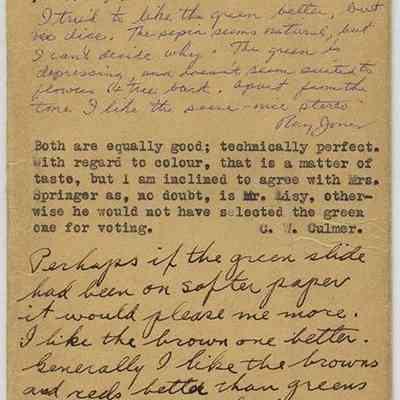 I tried to like the green better, but
no dice. The sepia seems natural, but
I can't decide why. The green is
depressing, and doesn't seem suited to
flowers & tree bark. Apart from the
tone I like the scene - nice stereo
Ray Jones
Both are equally good; technically perfect.
With regard to colour, that is a matter of
taste, but I am inclined to agree with Mrs.
Springer as, no doubt, is Mr. Lisy, other-
wise he would not have selected the green
one for voting. C. W. Culmer.
Perhaps if the green slide
had been on softer paper
it would please me more.
I like the brown one better.
Generally I like the browns
and reds better than greens